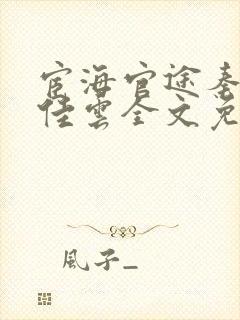 宦海官途秦
佳雲全文免
風子_